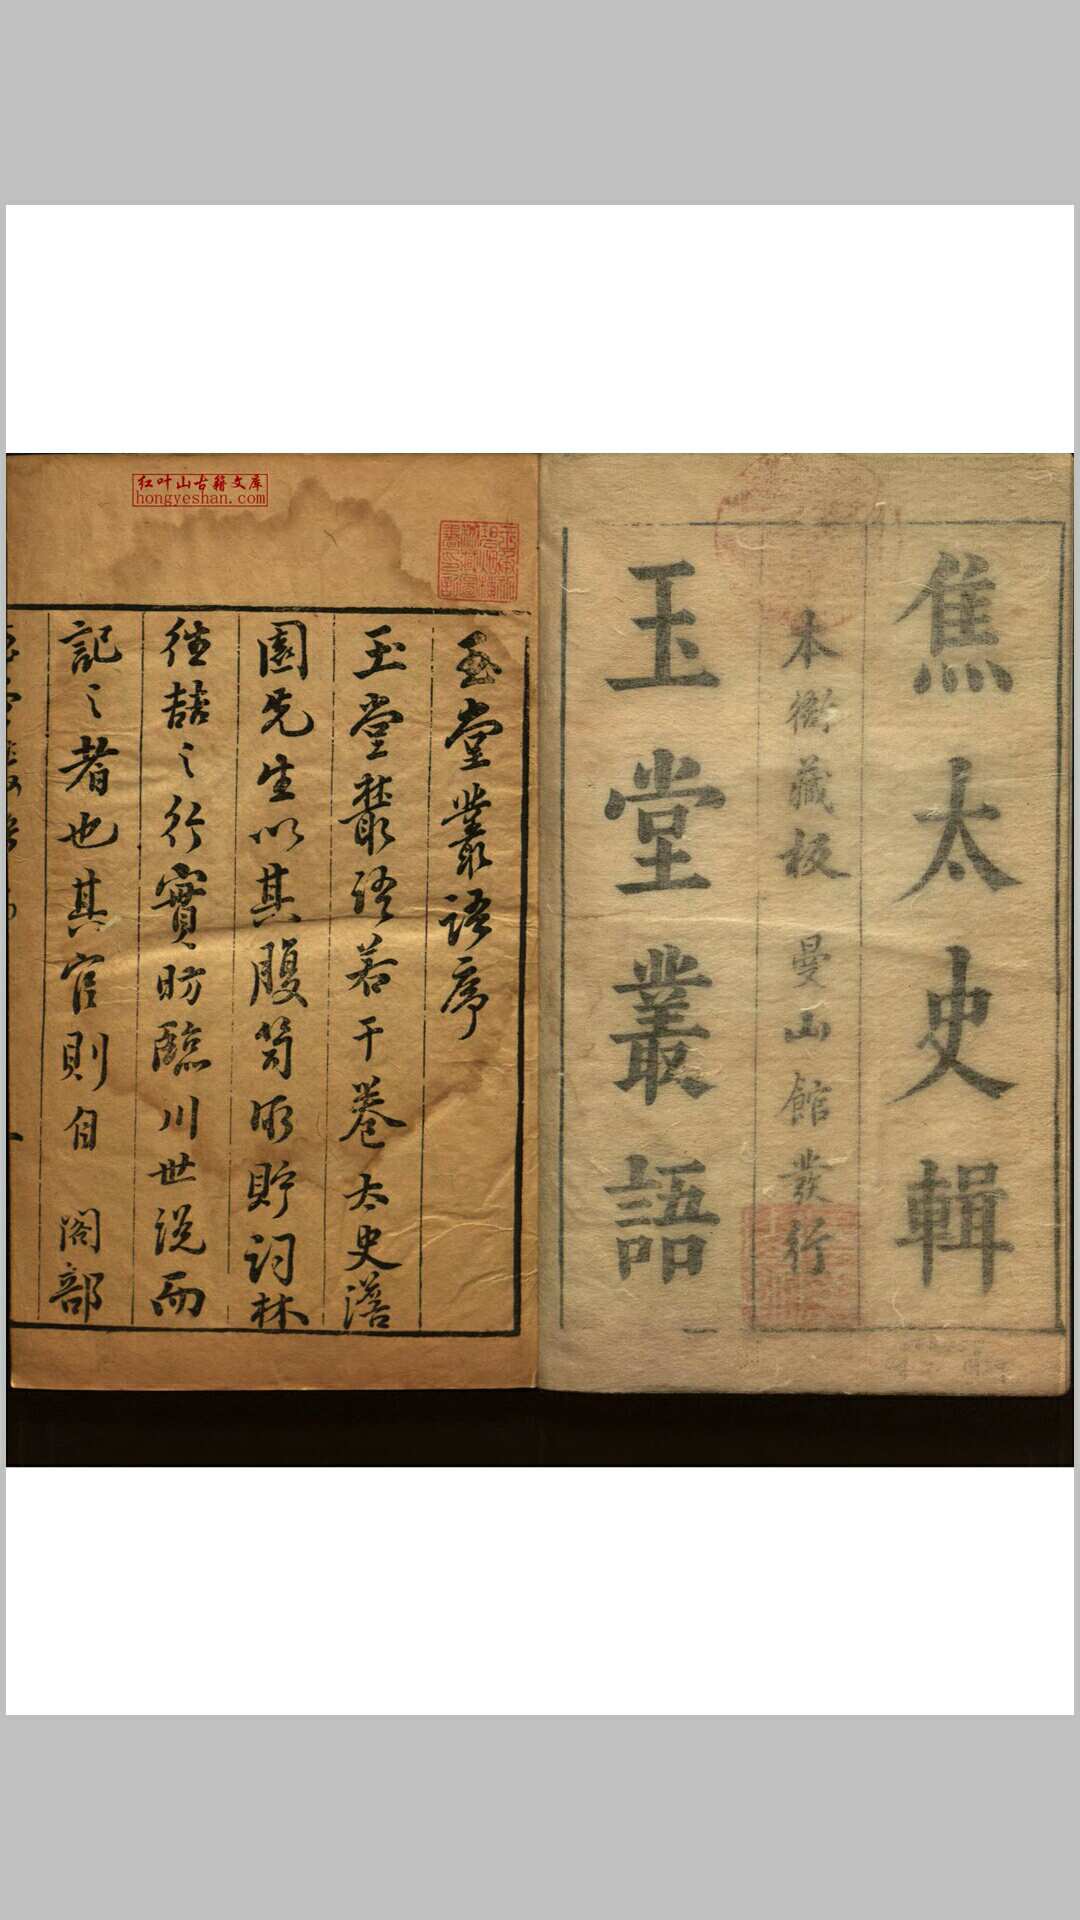 焦太史輯
本衙藏板 曼山館發行
玉堂叢語
红叶山古籍文库
hongyeshan.com
玉堂叢語序
玉堂叢語若干卷太史澹
園先生以其腹笥所貯詞林
往喆之行實昉臨川世說而
記之者也其官則自 閣部